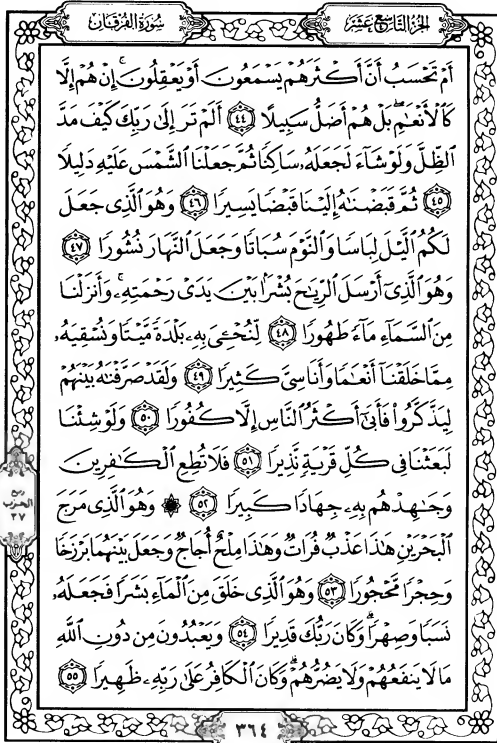 سُورَةُ الفُرْقَان
الجُزْءُ التَّاسِعَ عَشَرَ
أَمْ تَحْسَبُ أَنَّ أَكْثَرَهُمْ يَسْمَعُونَ أَوْ يَعْقِلُونَ ۚ إِنْ هُمْ إِلَّا
كَالْأَنْعَٰمِ ۖ بَلْ هُمْ أَضَلُّ سَبِيلًا ٤٤ أَلَمْ تَرَ إِلَىٰ رَبِّكَ كَيْفَ مَدَّ
ٱلظِّلَّ وَلَوْ شَآءَ لَجَعَلَهُۥ سَاكِنًا ثُمَّ جَعَلْنَا ٱلشَّمْسَ عَلَيْهِ دَلِيلًا
٤٥ ثُمَّ قَبَضْنَٰهُ إِلَيْنَا قَبْضًا يَسِيرًا ٤٦ وَهُوَ ٱلَّذِى جَعَلَ
لَكُمُ ٱلَّيْلَ لِبَاسًا وَٱلنَّوْمَ سُبَاتًا وَجَعَلَ ٱلنَّهَارَ نُشُورًا ٤٧
وَهُوَ ٱلَّذِىٓ أَرْسَلَ ٱلرِّيَٰحَ بُشْرًۢا بَيْنَ يَدَىْ رَحْمَتِهِۦ ۚ وَأَنزَلْنَا
مِنَ ٱلسَّمَآءِ مَآءً طَهُورًا ٤٨ لِّنُحْـِۧىَ بِهِۦ بَلْدَةً مَّيْتًا وَنُسْقِيَهُۥ
مِمَّا خَلَقْنَآ أَنْعَٰمًا وَأَنَاسِىَّ كَثِيرًا ٤٩ وَلَقَدْ صَرَّفْنَٰهُ بَيْنَهُمْ
لِيَذَّكَّرُوا۟ فَأَبَىٰٓ أَكْثَرُ ٱلنَّاسِ إِلَّا كُفُورًا ٥٠ وَلَوْ شِئْنَا
لَبَعَثْنَا فِى كُلِّ قَرْيَةٍ نَّذِيرًا ٥١ فَلَا تُطِعِ ٱلْكَٰفِرِينَ
وَجَٰهِدْهُم بِهِۦ جِهَادًا كَبِيرًا ٥٢ ۞ وَهُوَ ٱلَّذِى مَرَجَ
ٱلْبَحْرَيْنِ هَٰذَا عَذْبٌ فُرَاتٌ وَهَٰذَا مِلْحٌ أُجَاجٌ وَجَعَلَ بَيْنَهُمَا بَرْزَخًا
وَحِجْرًا مَّحْجُورًا ٥٣ وَهُوَ ٱلَّذِى خَلَقَ مِنَ ٱلْمَآءِ بَشَرًا فَجَعَلَهُۥ
نَسَبًا وَصِهْرًا ۗ وَكَانَ رَبُّكَ قَدِيرًا ٥٤ وَيَعْبُدُونَ مِن دُونِ ٱللَّهِ
مَا لَا يَنفَعُهُمْ وَلَا يَضُرُّهُمْ ۗ وَكَانَ ٱلْكَافِرُ عَلَىٰ رَبِّهِۦ ظَهِيرًا ٥٥
ربع
الحزب
٣٧
٣٦٤